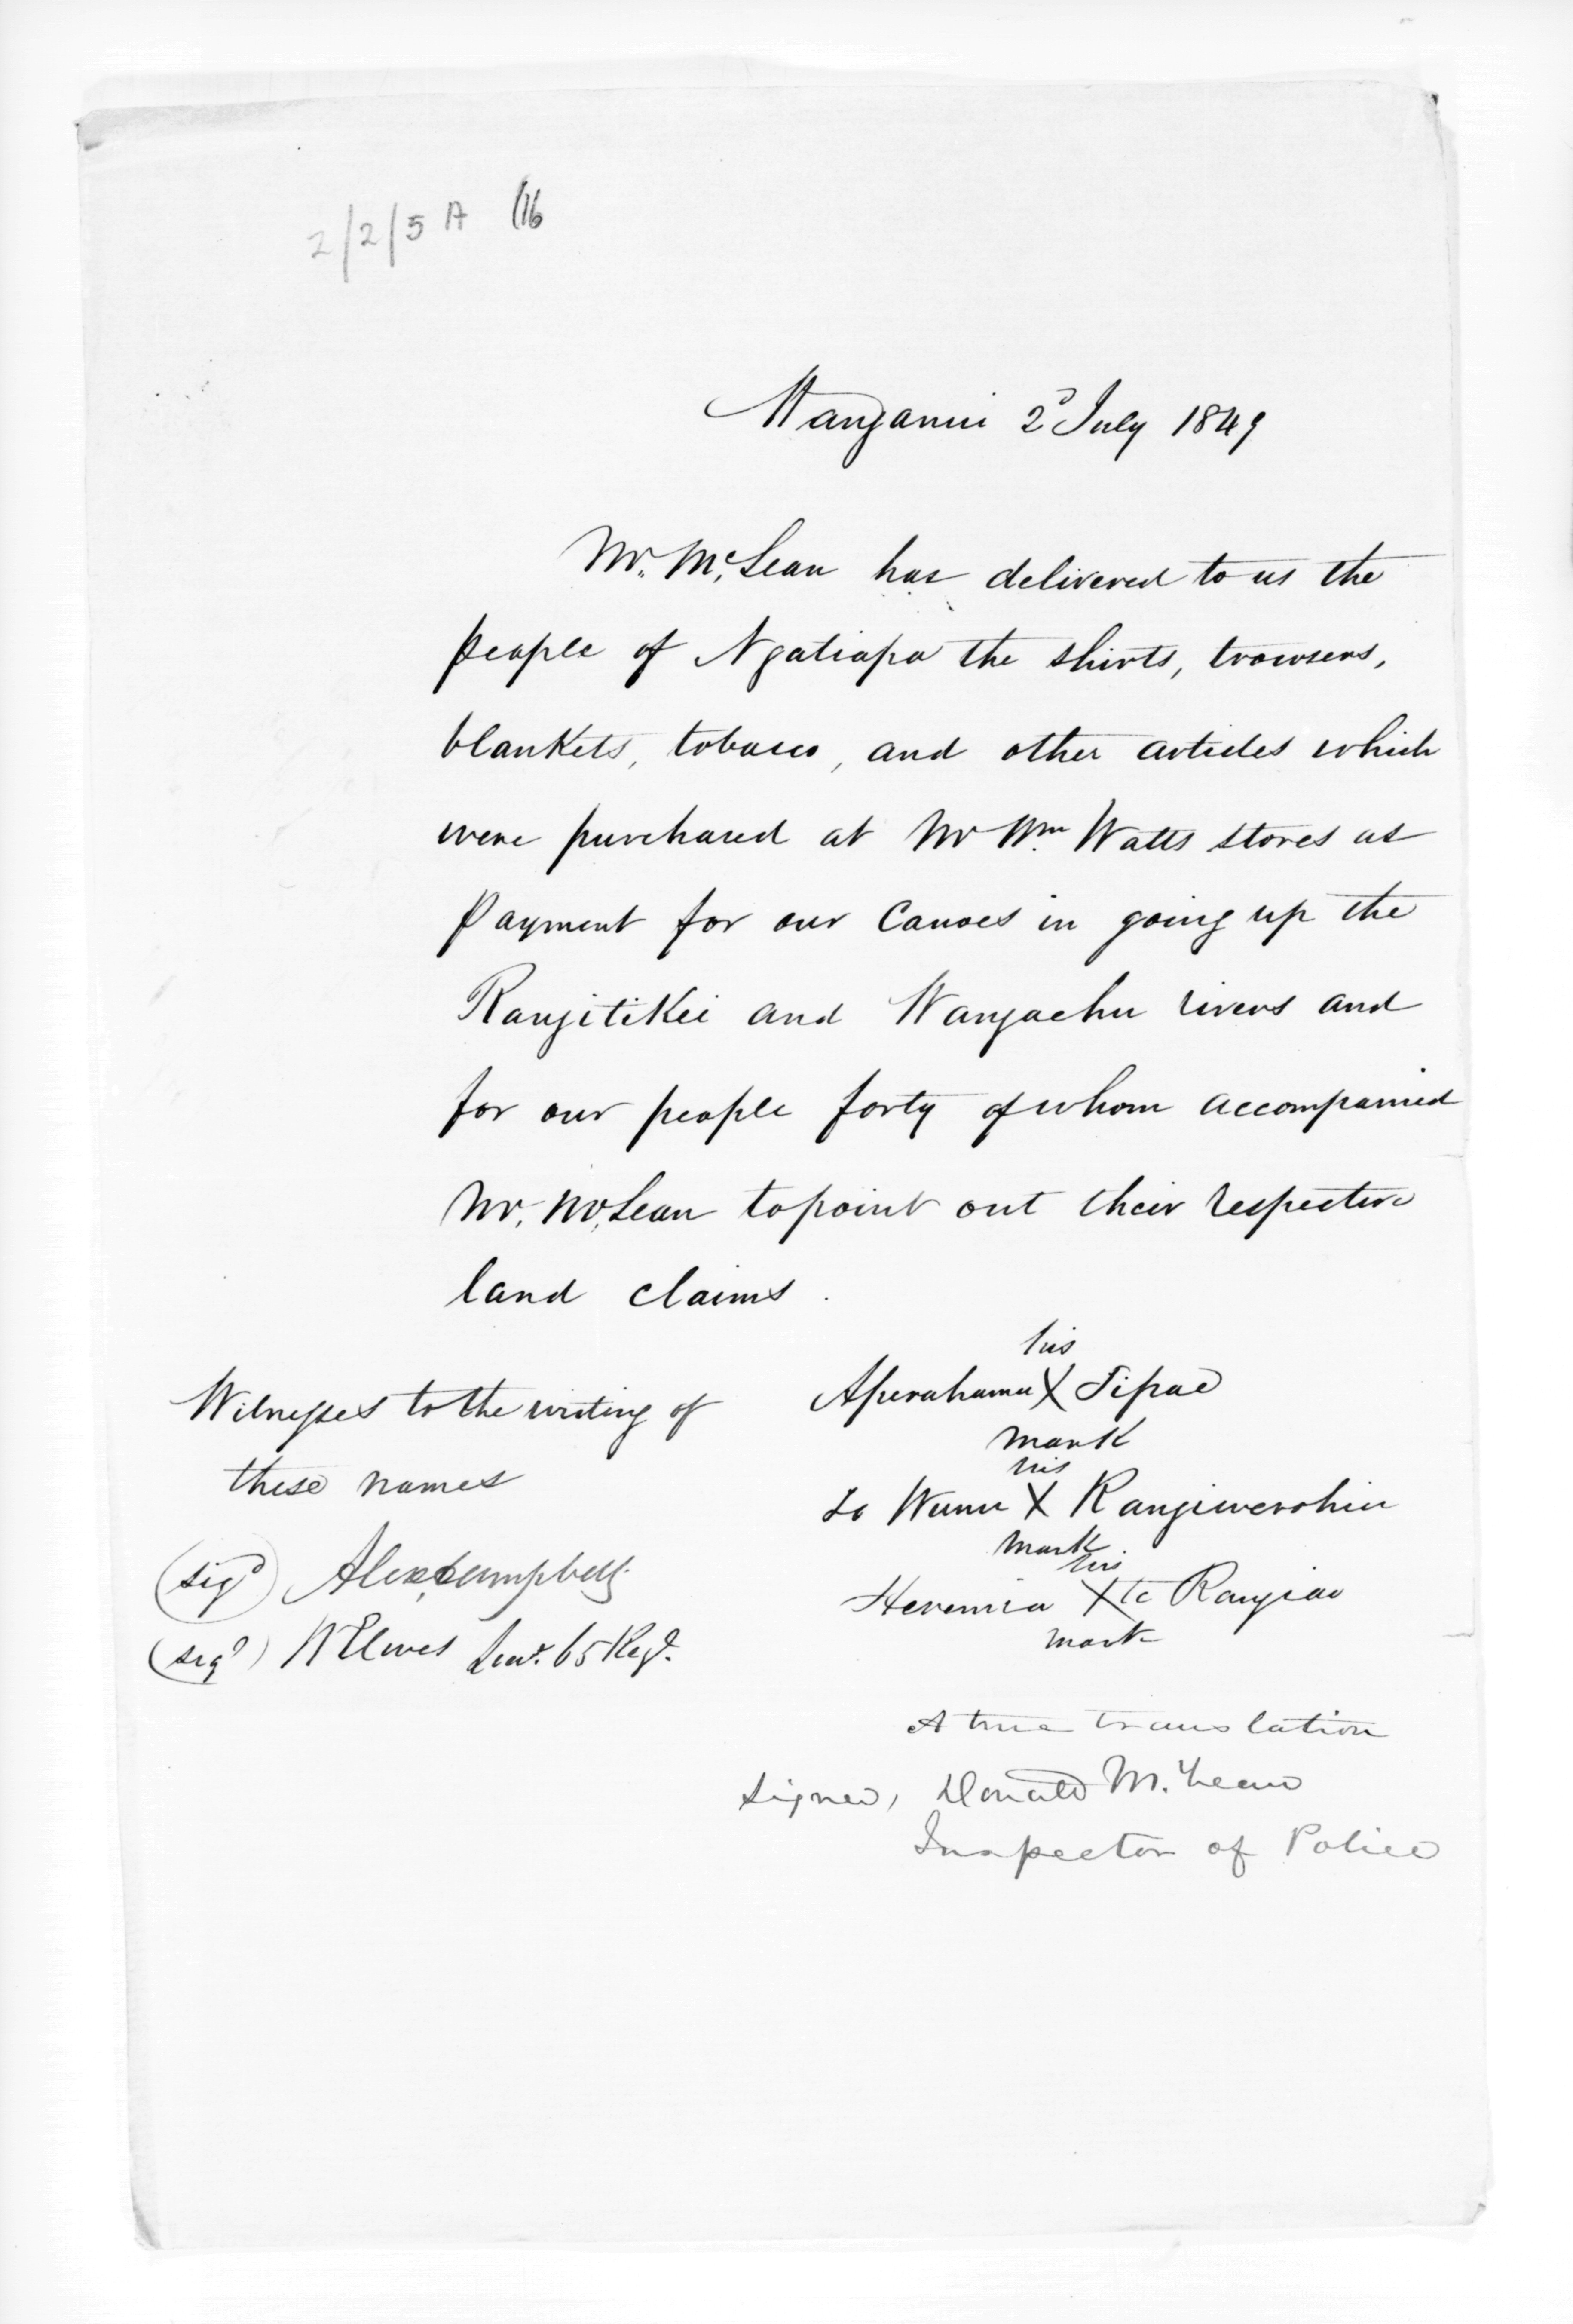 2/2/5 A (16
Wanganui 2d July 1849
Mr. McLean has delivered to us the
people of Ngatiapa the shirts, trowsers,
blankets, tobacco, and other articles which
were purchased at Mr Wm Watts stores as
Payment for our Canoes in going up the
Rangitikei and Wangaehu rivers and
for our people forty of whom accompanied
Mr. McLean to point out their respective
land claims.
his
Aperahama X Tipae
mark
his
X Rangiwerohia
mark
his
Heremia X te Rangiao
mark
Witnesses to the writing of
these names
(sigd) Alex Campbell
(sigd) W Elwes Lieut. 65 Regt.
A true translation
Signed, Donald McLean
Inspector of Police